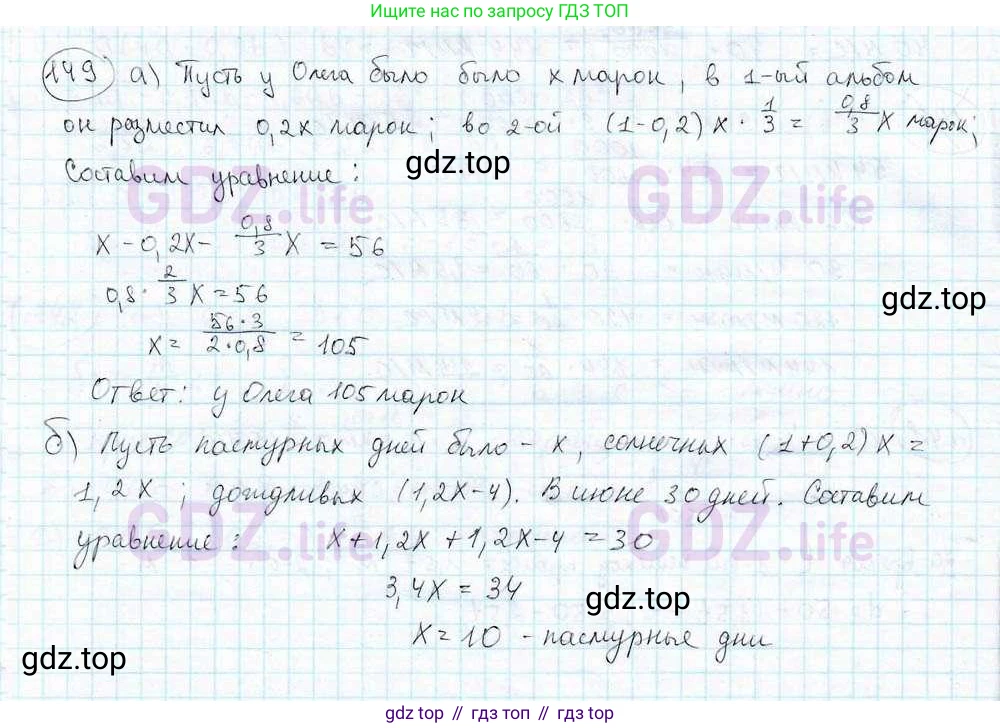 Ищите по запросу ГДЗ ТОП
149 а) Пусть у Олега было было x марок, в 1-ый альбом
он разместил 0,2x марок; во 2-ой (1-0,2)x · 1/3 = 0,8/3 x марок;
gdz.top
Составим уравнение:
GDZ.life GDZ.life
x - 0,2x - 0,8/3 x = 56
0,8 · 2/3 x = 56
gdz.top
x = 56·3/2·0,8 = 105
Ответ: у Олега 105 марок
б) Пусть пасмурных дней было - x, солнечных (1+0,2)x =
1,2x; дождливых (1,2x-4). В июне 30 дней. Составим
GDZ.life GDZ.life
уравнение: x+1,2x+1,2x-4=30
3,4x = 34
gdz.top
x = 10 - пасмурные дни
gdz.top
gdz top // гдз топ // gdz top